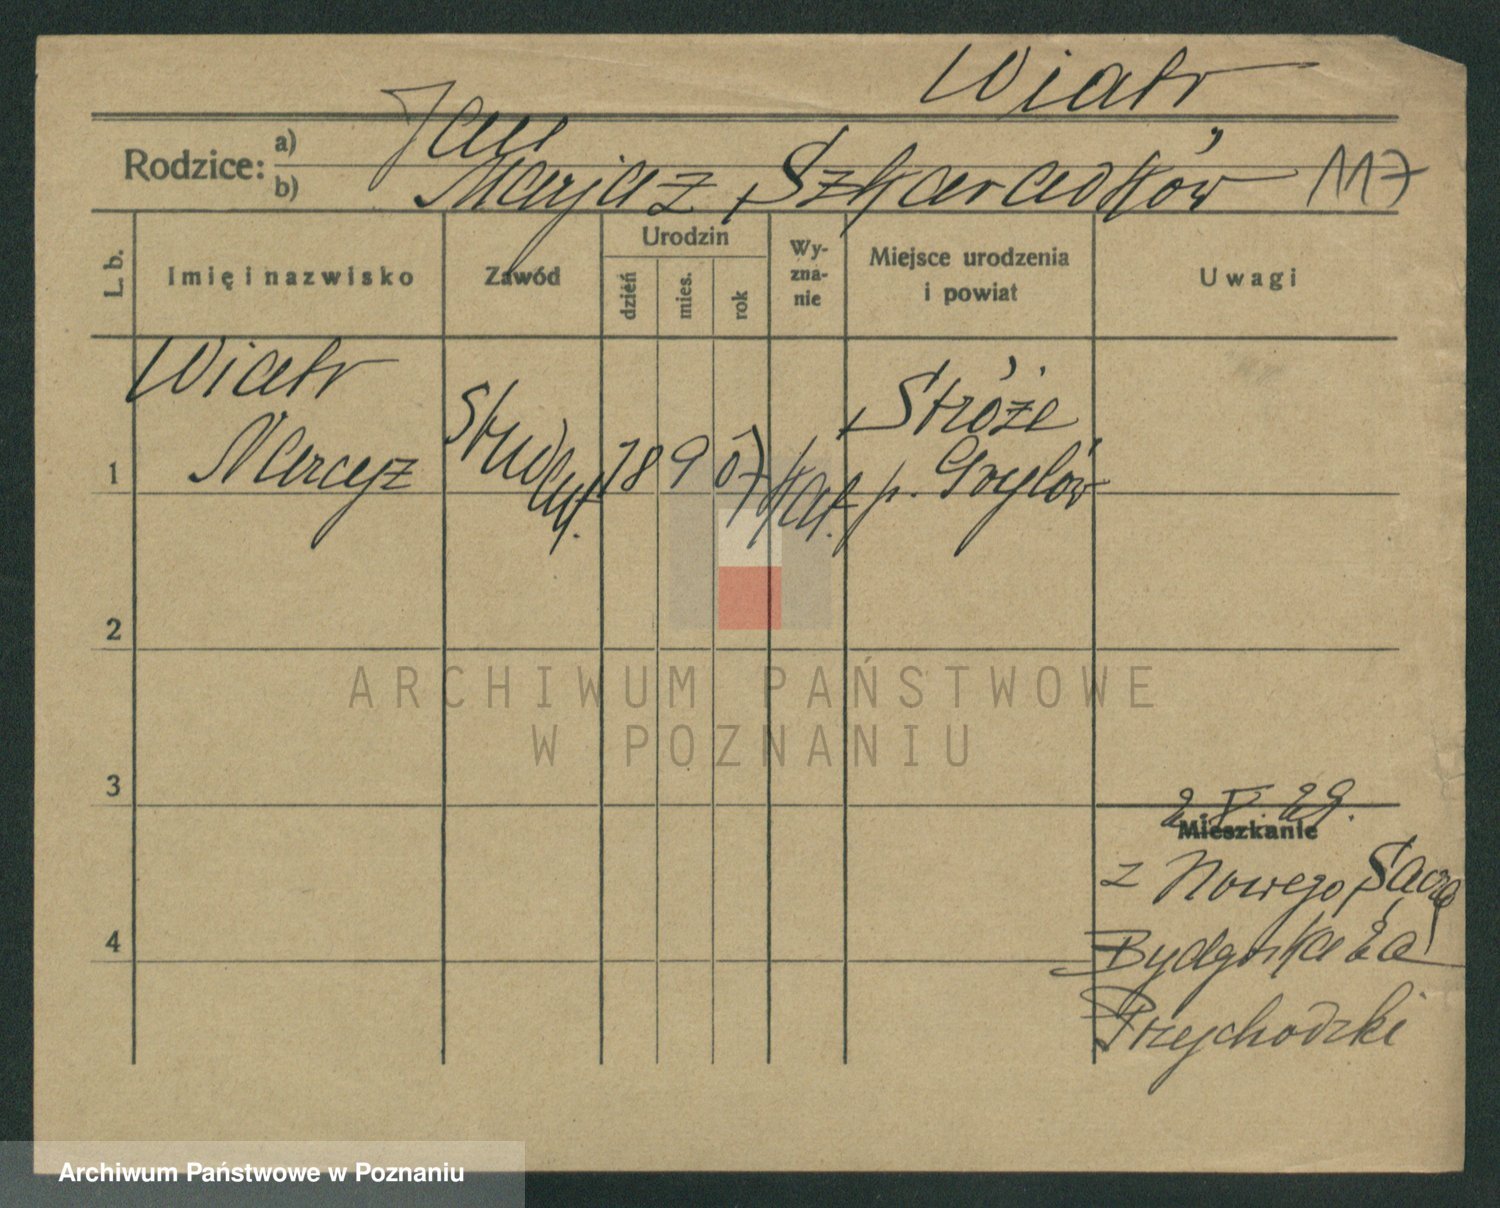 Wiatr
Rodzice: a) Jan
b) Marja z Szkaradków 117
L. b. Imię i nazwisko Zawód Urodzin dzień mies. rok Wy-zna-nie Miejsce urodzenia i powiat Uwagi
Wiatr
1 Student 18 9 07 kat. Stróże
p. Grybów
2
3
2. V. 29.
Mieszkanie
z Nowego Sącza
4 Bydgoska 2a
Przychodzki
ARCHIWUM PAŃSTWOWE
W POZNANIU
Archiwum Państwowe w Poznaniu